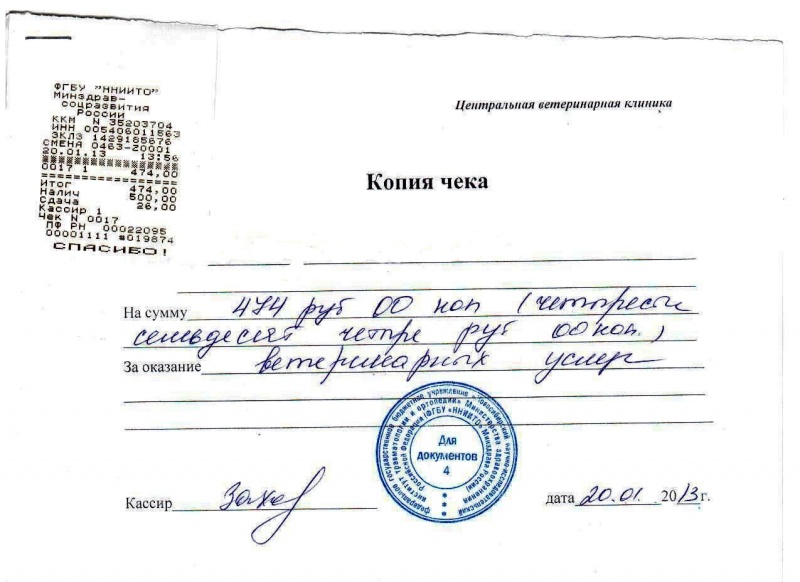 ФГБУ "ННИИТО"
Минздрав-
соцразвития
России
ККМ N 35203704
ИНН 005406011563
ЭКЛЗ 1429185676
СМЕНА 0463-20001
20.01.13 13:56
0017 1 474,00
ИТОГ 474,00
Налич 500,00
Сдача 26,00
Кассир 1
Чек N 0017
ПФ РН 00022095
00001111 #019874
СПАСИБО!
Центральная ветеринарная клиника
Копия чека
На сумму 474 руб 00 коп (четыреста
семьдесят четре руб 00 коп.)
За оказание ветеринарных услуг
Федеральное государственное бюджетное учреждение «Новосибирский научно-исследовательский
институт травматологии и ортопедии» Министерства здравоохранения
Российской Федерации (ФГБУ «ННИИТО» Минздрава России)
Для
документов
4
Кассир
дата 20.01 2013 г.